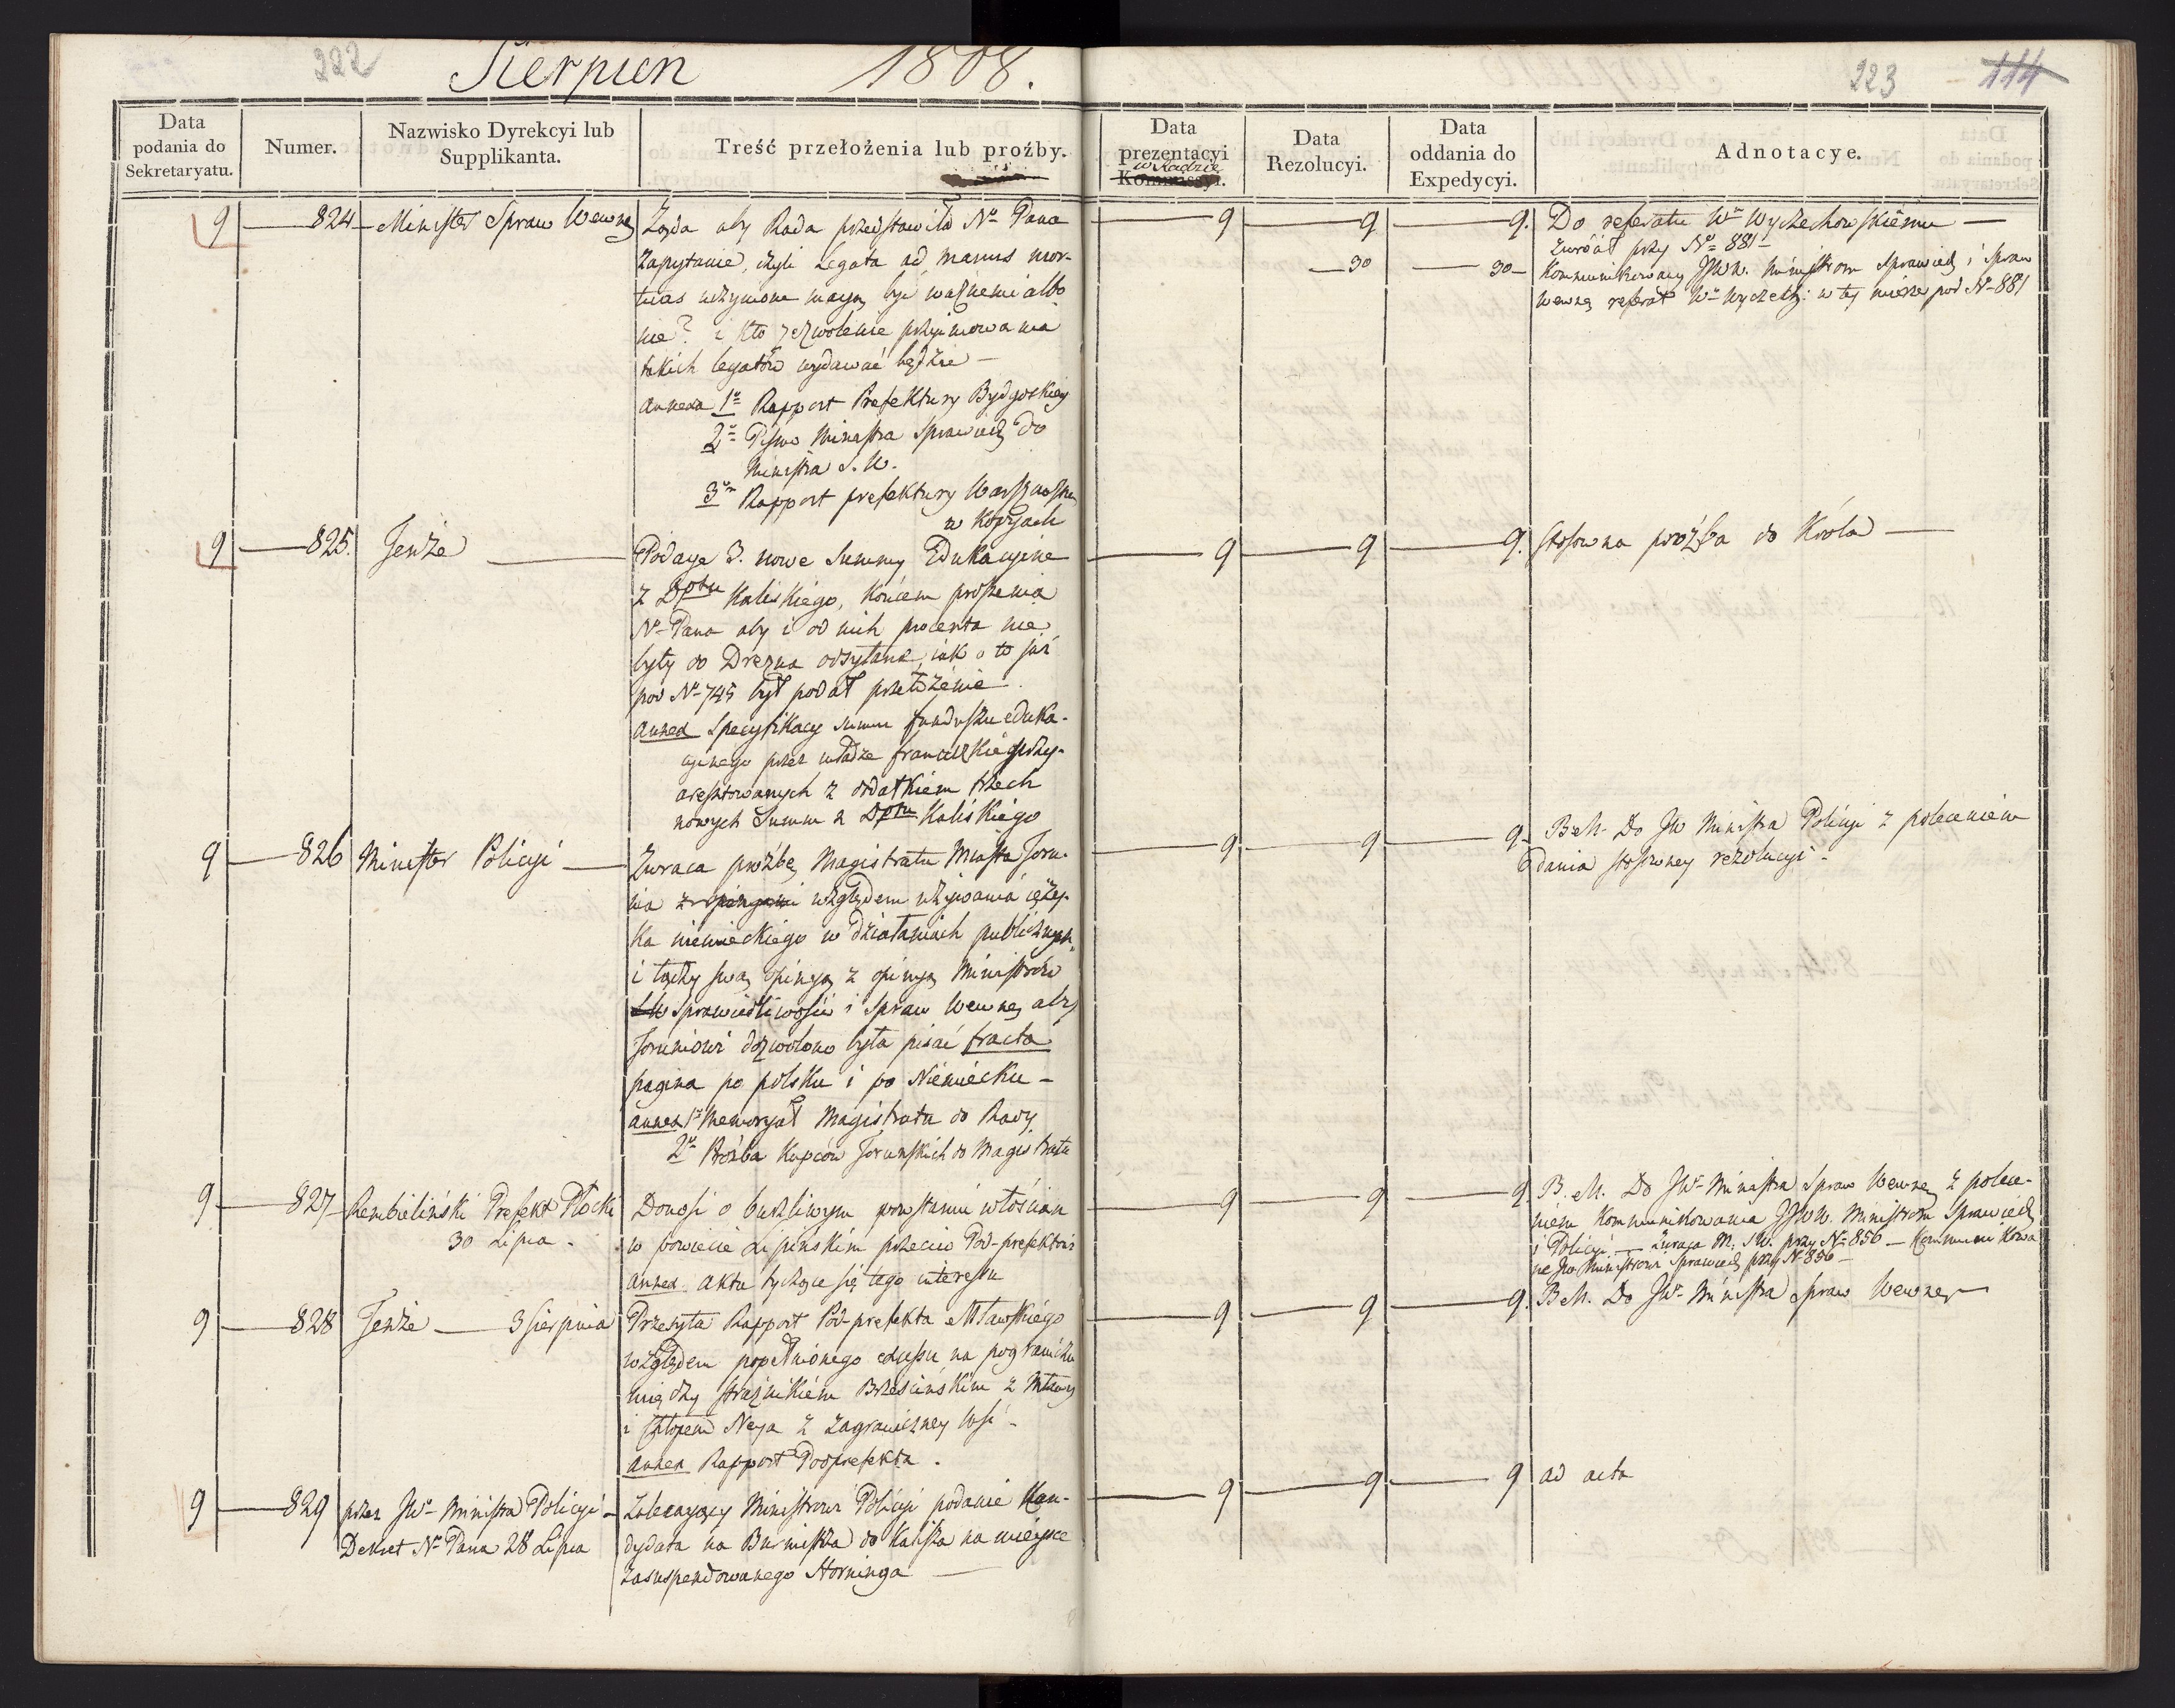 222 Sierpień 1808.
Data podania do Sekretaryatu.
Numer.
Nazwisko Dyrekcyi lub Supplikanta.
Treść przełożenia lub proźby.
9 — 824 — Minister Spraw Wewnę
Żąda aby Rada przedstawiła Nu Panu
zapytanie, czyli Legata ad manus mor-
tuas uczynione mają być ważnemi albo
nie? i kto zezwolenie przyimowania
takich legatów wydawać będzie —
annexa 1o Rapport Prefektury Bydgoskiey
2o Pismo Ministra Sprawiedl do
Ministra S. W.
3o Rapport prefektury Warszawskiey
w kopyach
9 — 825. Tenże —
Podaye 3. nowe Summy Edukacyine
z Dptu Kaliskiego, końcem proszenia
Nº Pana aby i od nich procenta nie
były do Drezna odsyłane, iak o to już
pod Nº 745 był podał przełożenie.
annex Specyfikacy summ funduszu eduka-
cyinego przez władze francuzkie przy-
aresztowanych z dodatkiem trzech
nowych Summ z Dptu Kaliskiego
9 — 826 Minister Policyi —
Zwraca proźbę Magistratu Miasta Toru-
nia względem używania ięzy-
ka niemieckiego w działaniach publicznych,
i łączy swą opinyą z opinyą Ministrów
Sprawiedliwości i Spraw Wewnę, aby
Toruniowi dozwolono było pisać fracta
pagina po polsku i po Niemiecku —
annex 1o Memoryał Magistratu do Rady
2o Proźba Kupców Toruńskich do Magistratu
9 — 827 — Rembieliński Prefekt Płocki
30 Lipca.
Donosi o burzliwym powstaniu włościan
w powiecie Lipińskim przeciw Pod-prefektowi
annex. akta tyczące się tego interessu
9 — 828 Tenże — 3 Sierpnia
Przesyła Rapport Pod-prefekta Mławskiego
względem popełnionego excessu na pograniczu
między strażnikiem Brzesińskim z Mławy
i chłopem Neya z zagraniczney Wsi —
annex Rapport Podprefekta.
9 — 829 przez JWo Ministra Policyi —
Dekret No Pana 28 Lipca
Zalecający Ministrowi Policyi podanie Kan-
dydata na Burmistrza do Kalisza na mieysce
zasuspendowanego Horninga —
223 114
Data prezentacyi w Radzie Kommissyi.
Data Rezolucyi.
Data oddania do Expedycyi.
Adnotacye.
9 — 9 — 9. Do referatu Wu Wyczechowskiemu —
Zwrócił przy Nº 881
— 30 — 30 — kommunikowany JWW. Ministrom Sprawiedl i Spraw
Wewnę referat Wo Wyczech: w tey mierze pod Nº 881
9 — 9 — 9. Stosowna proźba do Króla —
9 — 9 — 9. B.M. Do JW Ministra Policyi z poleceniem
dania stosowney rezolucyi —
9 — 9 — 9. B. M. Do JWo Ministra Spraw Wewnę z polece-
niem kommunikowania JJWW. Ministrom Sprawiedl
i Policyi — Zwraca M. S.W. przy Nº 856 — Kommunikowa
ne Ministrowi Sprawiedl przy Nº 856 —
9 — 9 — 9. B.M. Do JWo Ministra Spraw Wewnę —
9 — 9 — 9 ad acta